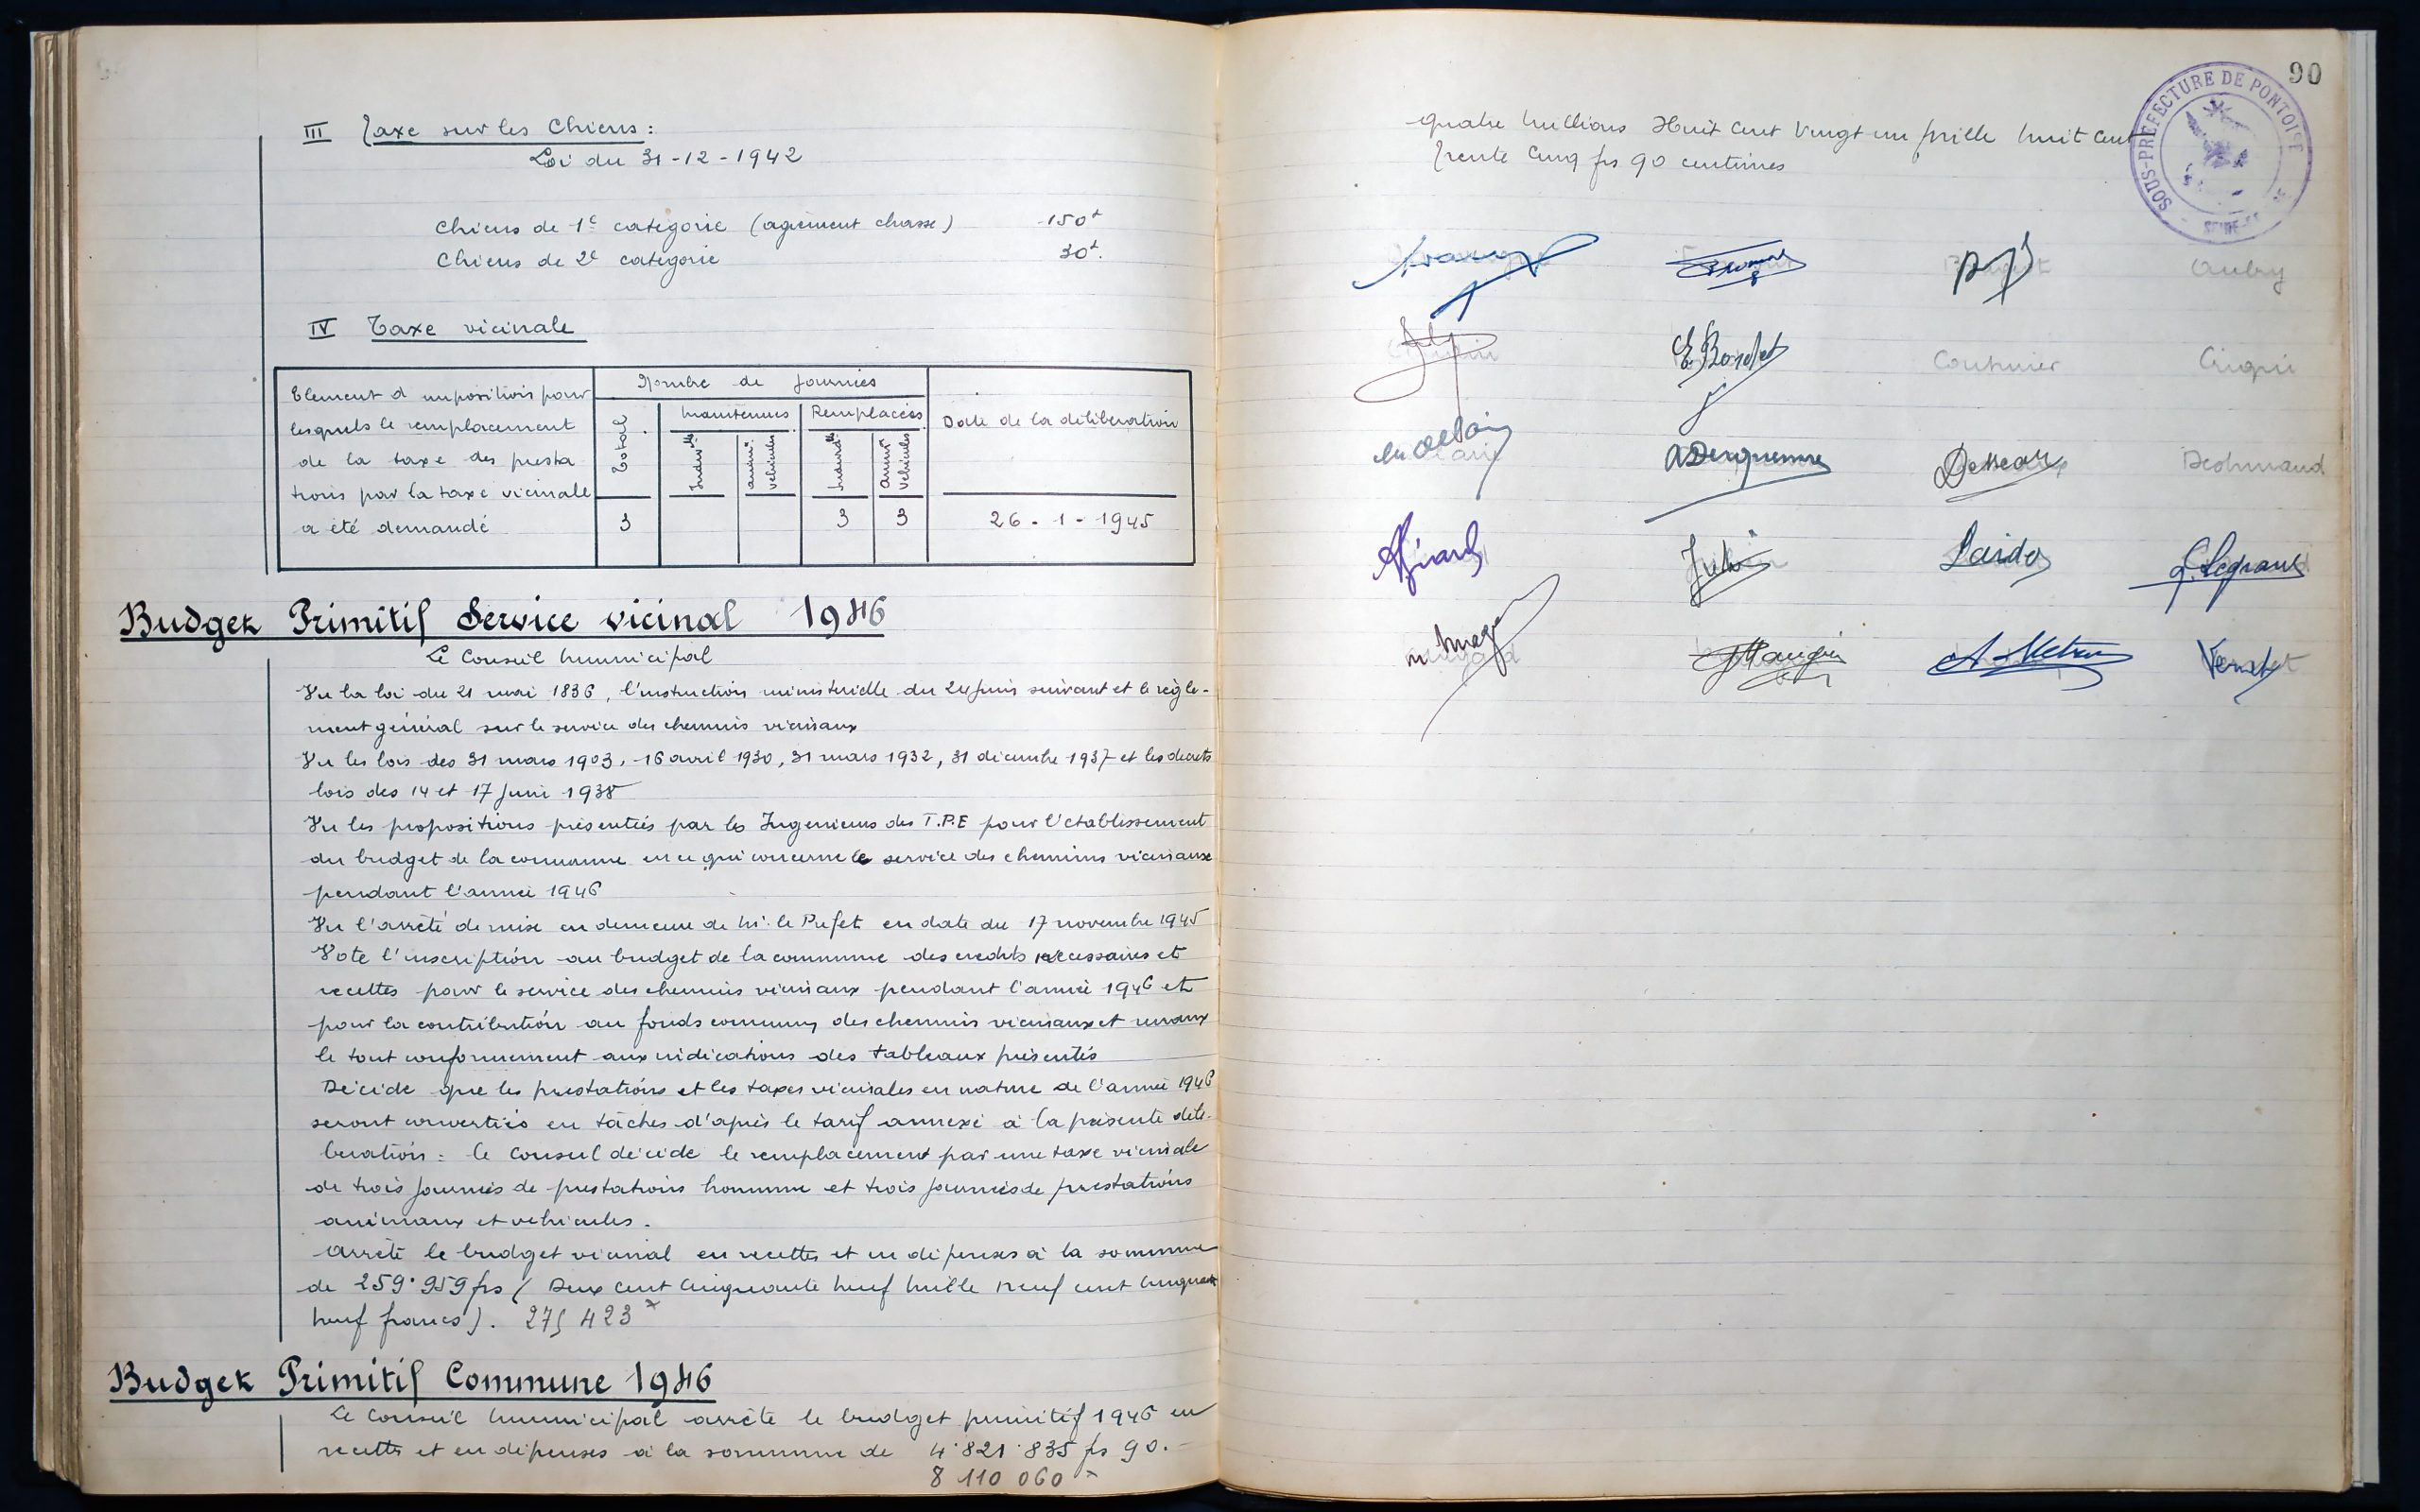 III Taxe sur les Chiens :
Loi du 31-12-1942
Chiens de 1e categorie (agrément chasse) 150f
Chiens de 2e categorie 30f.
IV Taxe vicinale
Nombre de journées
Element d'impositions pour
lesquels le remplacement
de la taxe des presta
tions par la taxe vicinale
a été demandé
Total
maintenues
Remplacées
Date de la déliberation
Indivlle
anim. véhicules
Indivlle
Animx véhicules
3 3 3 26 - 1 - 1945
Budget Primitif Service vicinal 1946
Le Conseil Municipal
Vu la loi du 21 mai 1836, l'instruction ministerielle du 24 juin suivant et le règle-
ment général sur le service des chemins vicinaux
Vu les lois des 31 mars 1903, 16 avril 1930, 31 mars 1932, 31 décembre 1937 et les decrets
lois des 14 et 17 juin 1938
Vu les propositions présentées par les Ingenieurs des T.P.E pour l'etablissement
du budget de la commune en ce qui concerne le service des chemins vicinaux
pendant l'année 1946
Vu l'arrêté de mise en demeure de Mr. le Prefet en date du 17 novembre 1945
Vote l'inscription au budget de la commune des credits necessaires et
recettes pour le service des chemins vicinaux pendant l'année 1946 et
pour la contribution au fonds commun des chemins vicinaux et ruraux
le tout conformement aux indications des tableaux présentés
Décide que les prestations et les taxes vicinales en nature de l'année 1946
seront converties en tâches d'après le tarif annexé à la présente déli-
beration : le Conseil décide le remplacement par une taxe vicinale
de trois journées de prestations homme et trois journées de prestations
animaux et vehicules.
Arrête le budget vicinal en recettes et en dépenses à la somme
de 259.959 frs (Deux cent cinquante neuf mille neuf cent cinquante
neuf francs). 275 423 x
Budget Primitif Commune 1946
Le Conseil Municipal arrête le budget primitif 1946 en
recettes et en dépenses à la somme de 4.821.835 frs 90.-
8 110 060 x
90
SOUS-PRÉFECTURE DE PONTOISE
quatre Millions Huit Cent Vingt un Mille huit Cent
trente Cinq frs 90 centimes
Aubry
E. Bonchet
Couturier
Cinqui
ADerquenne
Desmeau
Desbmaud
AGirard
Julien
Laidos
G. Legrand
Mangin
Vernet